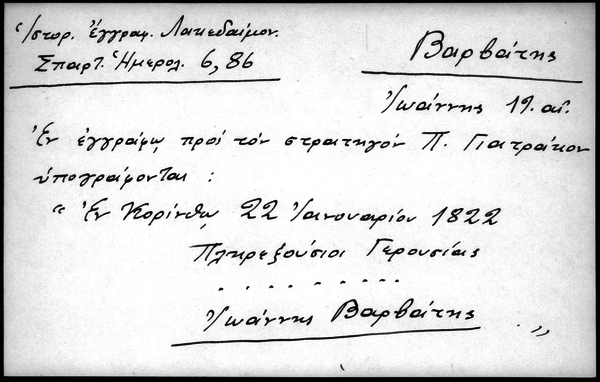 Ἱστορ. ἔγγραφ. Λακεδαίμον.
Σπαρτ. Ἡμερολ. 6, 86
Βαρβάτης
Ἰωάννης 19. αἰ.
Ἐν ἐγγράφῳ πρὸς τὸν στρατηγὸν Π. Γιατράκον
ὑπογράφονται :
" Ἐν Κορίνθῳ 22 Ἰανουαρίου 1822
Πληρεξούσιοι Γερουσίας
. . . . . . . . .
Ἰωάννης Βαρβάτης "